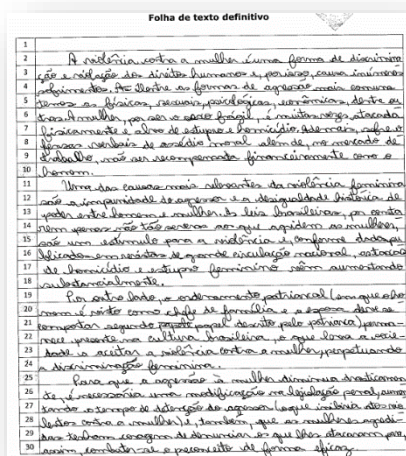 Folha de texto definitivo
1
2 A violência contra a mulher é uma forma de discrimina
3 ção e violação dos direitos humanos e, por isso, causa inúmeros
4 sofrimentos. Dentre as formas de agressão mais comuns
5 temos as físicas, sexuais, psicológicas, econômicas, dentre ou
6 tras. A mulher, por ser o sexo frágil, é muitas vezes atacada
7 fisicamente e alvo de estupro e homicídio. Ademais, sofre o
8 fensas verbais de assédio moral além de, no mercado de
9 trabalho, não ser recompensada financeiramente como o
10 homem.
11 Uma das causas mais relevantes da violência feminina
12 são a impunidade do agressor e a desigualdade histórica de
13 poder entre homem e mulher. As leis brasileiras, por conta
14 rem penas não tão severas ao que agridem as mulheres,
15 são um estímulo para a violência e, conforme dados pu
16 blicados em revistas de grande circulação nacional, os casos
17 de homicídio e estupro feminino vêm aumentando
18 substancialmente.
19 Por outro lado, o ordenamento patriarcal (em que o ho
20 mem é visto como chefe de família e a esposa deve se
21 comportar segundo papel descrito pelo patriarca) perma-
22 nece presente na cultura brasileira, o que leva a socie
23 dade a aceitar a violência contra a mulher, perpetuando
24 a discriminação feminina.
25 Para que a agressão à mulher diminua drasticamen
26 te, é necessária uma modificação na legislação penal, aumen
27 tando o tempo de detenção do agressor (o que inibiria atos vio
28 lentos contra a mulher) e, também, que as mulheres agredi-
29 das tenham coragem de denunciar os que lhes atacaram para,
30 assim, combater-se o preconceito de forma eficaz.